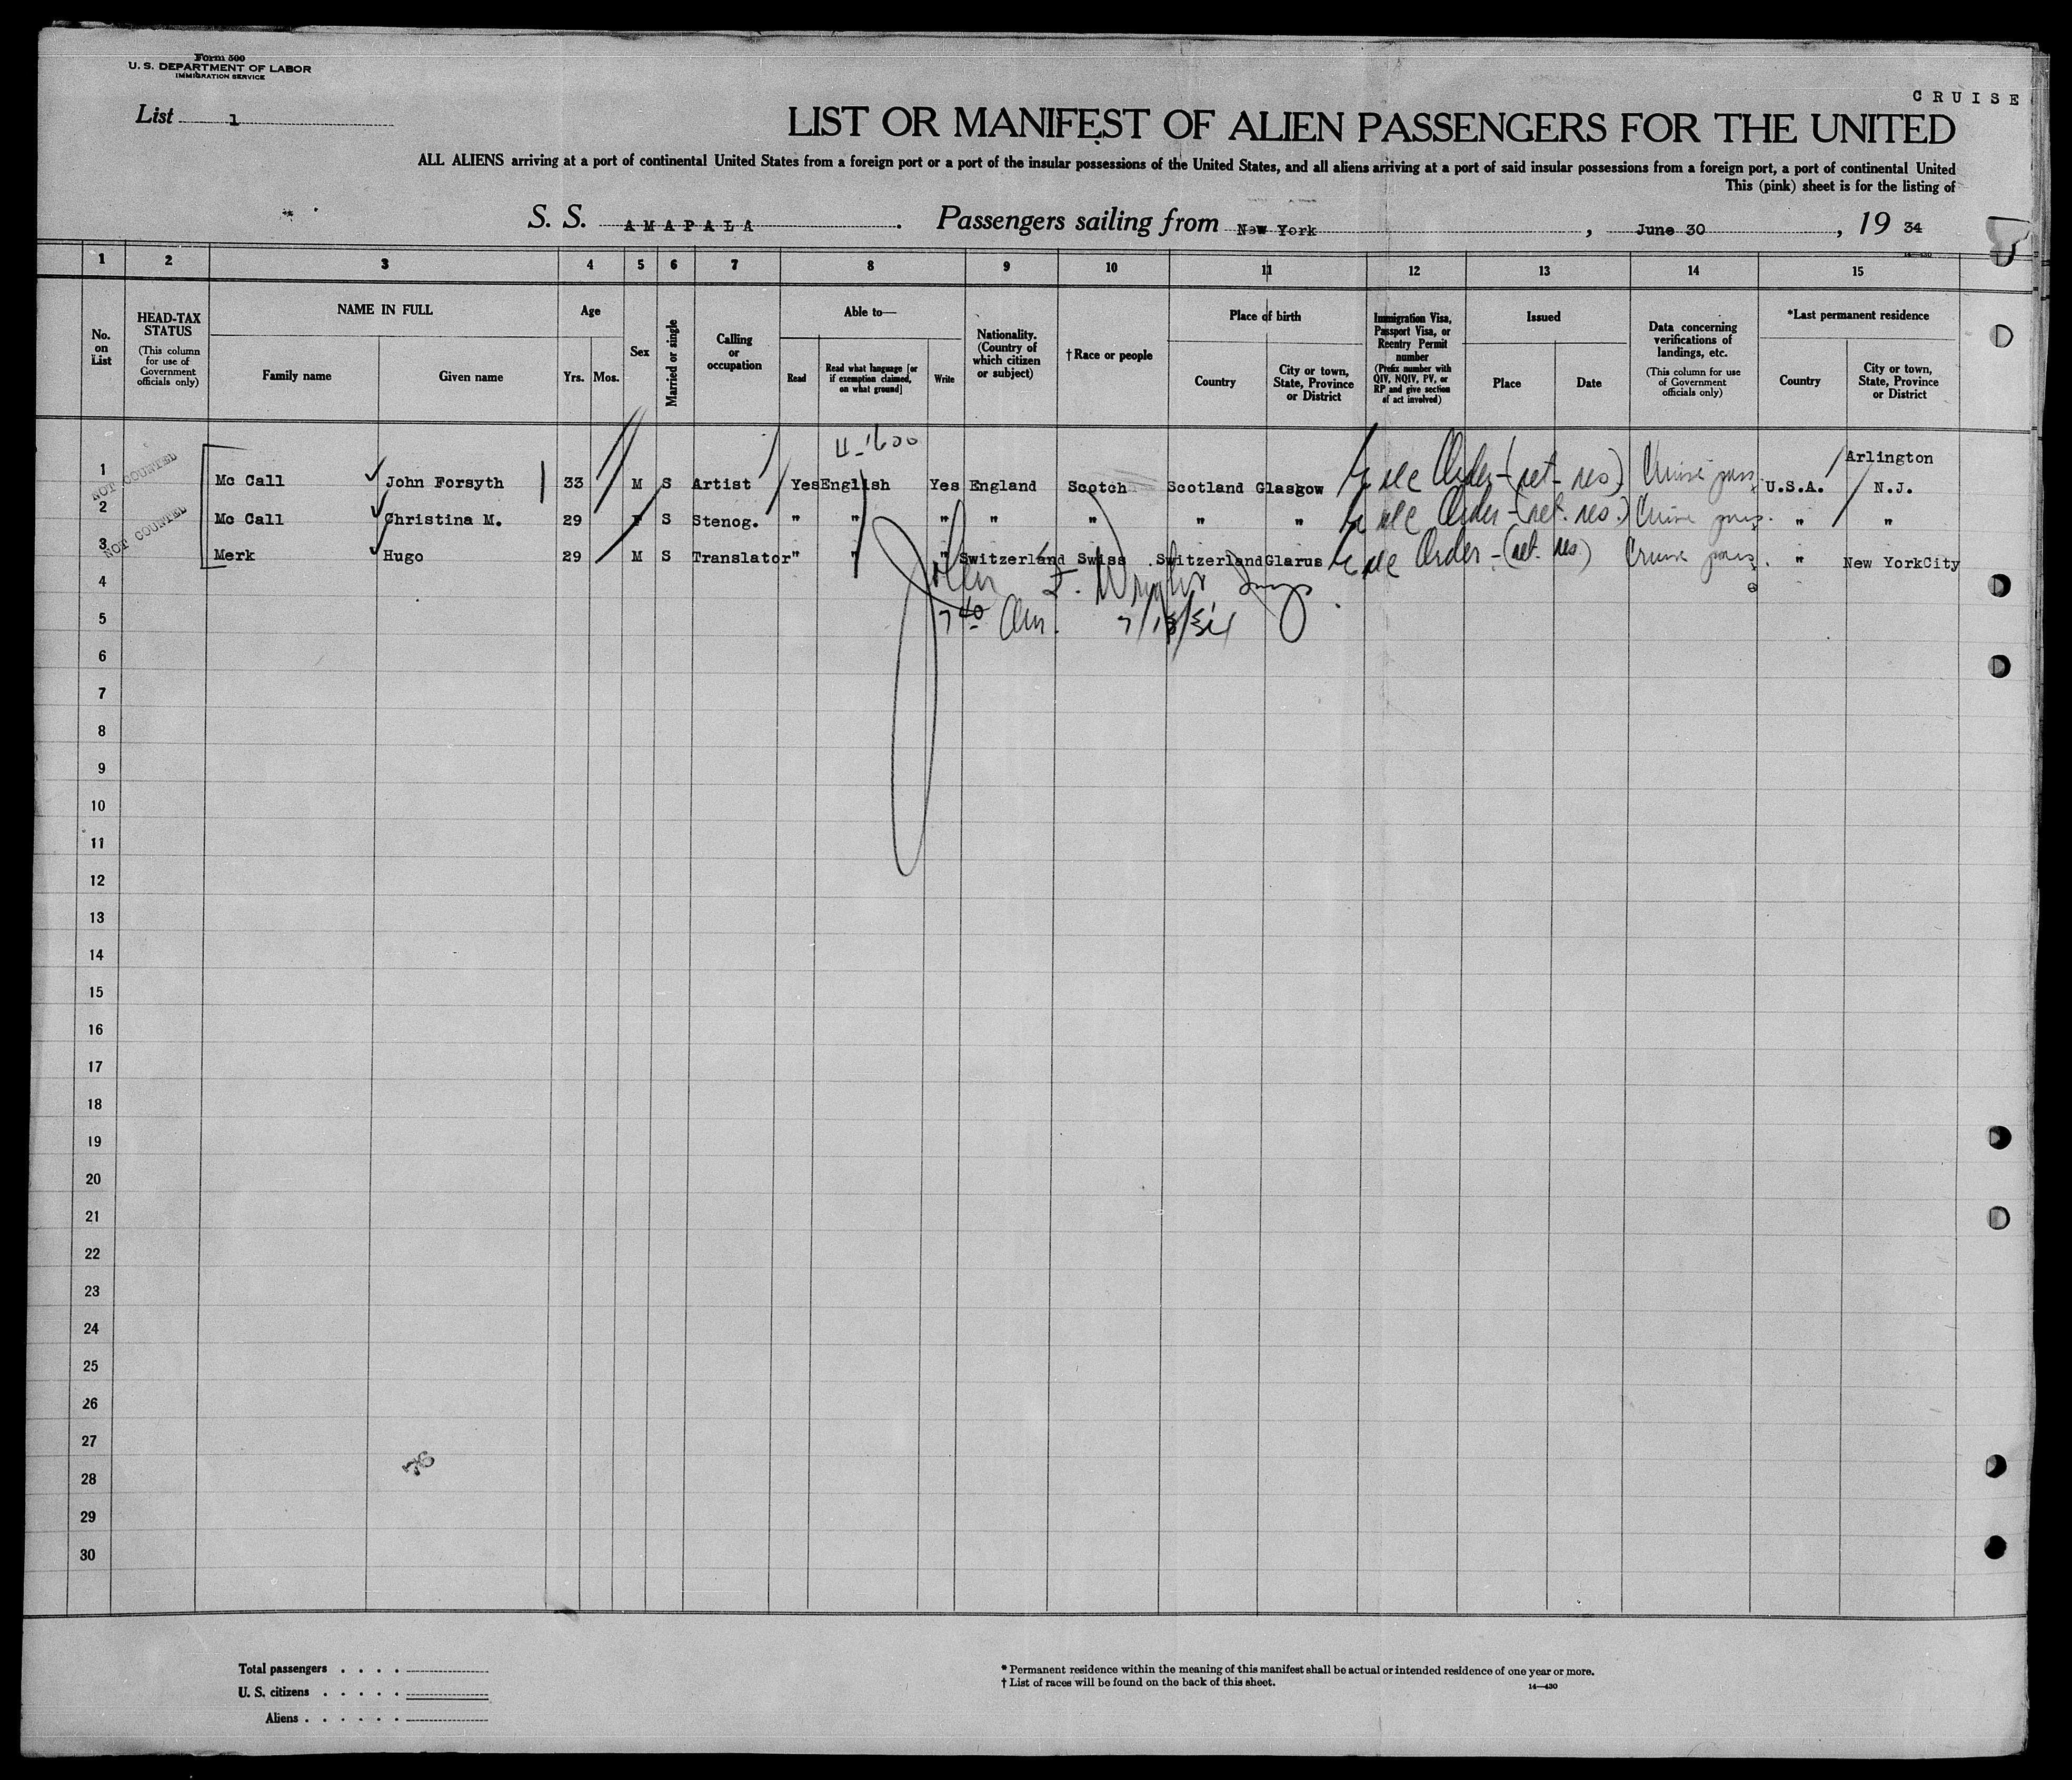 Form 500
U. S. DEPARTMENT OF LABOR
IMMIGRATION SERVICE
CRUISE
List 1
LIST OR MANIFEST OF ALIEN PASSENGERS FOR THE UNITED
ALL ALIENS arriving at a port of continental United States from a foreign port or a port of the insular possessions of the United States, and all aliens arriving at a port of said insular possessions from a foreign port, a port of continental United
This (pink) sheet is for the listing of
S. S. AMAPALA. Passengers sailing from New York, June 30, 19 34
14—430
1 2 3 4 5 6 7 8 9 10 11 12 13 14 15
No. on List
HEAD-TAX STATUS
(This column for use of Government officials only)
NAME IN FULL
Family name Given name
Age
Yrs. Mos.
Sex
Married or single
Calling or occupation
Able to—
Read
Read what language [or if exemption claimed, on what ground]
Write
Nationality. (Country of which citizen or subject)
†Race or people
Place of birth
Country
City or town, State, Province or District
Immigration Visa, Passport Visa, or Reentry Permit number
(Prefix number with QIV, NQIV, PV, or RP and give section of act involved)
Issued
Place Date
Data concerning verifications of landings, etc.
(This column for use of Government officials only)
*Last permanent residence
Country
City or town, State, Province or District
Arlington
1 NOT COUNTED Mc Call John Forsyth 33 M S Artist Yes English Yes England Scotch Scotland Glasgow Order - (ret. res) Cruise pass. U.S.A. N.J.
2 NOT COUNTED Mc Call Christina M. 29 F S Stenog. " " " " " " " Order - (ret. res.) Cruise pass. " "
3 Merk Hugo 29 M S Translator " " " Switzerland Swiss Switzerland Glarus Order - (ret. res) Cruise pass. " New York City
4
7 40 am. 7/13/34
5
6
7
8
9
10
11
12
13
14
15
16
17
18
19
20
21
22
23
24
25
26
27
28
29
30
Total passengers . . . .
U. S. citizens . . . . .
Aliens . . . . . .
* Permanent residence within the meaning of this manifest shall be actual or intended residence of one year or more.
† List of races will be found on the back of this sheet.
14—430